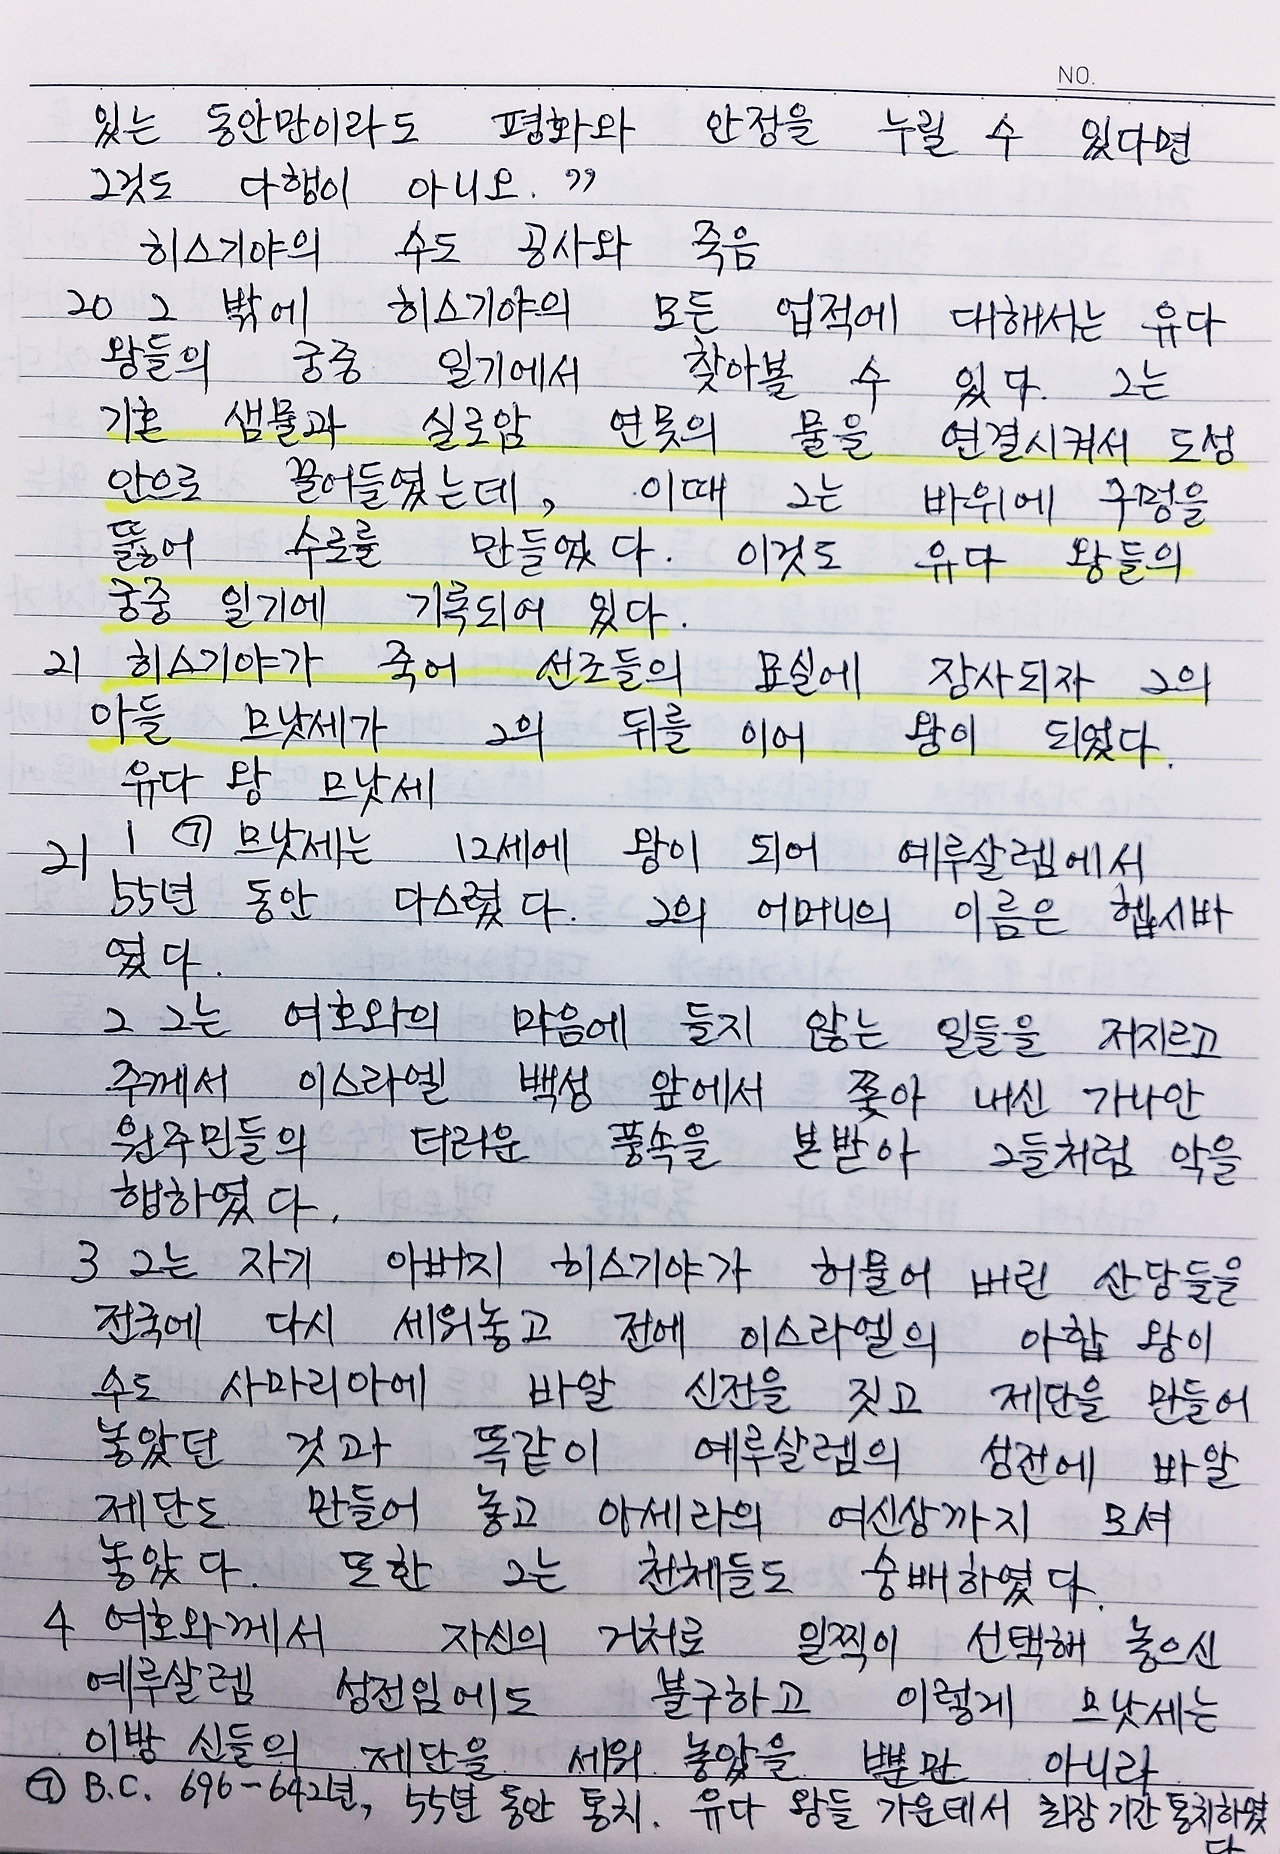 NO.
있는 동안만이라도 평화와 안정을 누릴 수 있다면
그것도 다행이 아니오.”
히스기야의 수도 공사와 죽음
20 그 밖에 히스기야의 모든 업적에 대해서는 유다
왕들의 궁중 일기에서 찾아볼 수 있다. 그는
기혼 샘물과 실로암 연못의 물을 연결시켜서 도성
안으로 끌어들였는데, 이때 그는 바위에 구멍을
뚫어 수로를 만들었다. 이것도 유다 왕들의
궁중 일기에 기록되어 있다.
21 히스기야가 죽어 선조들의 묘실에 장사되자 그의
아들 므낫세가 그의 뒤를 이어 왕이 되었다.
유다 왕 므낫세
21 1 ⑦ 므낫세는 12세에 왕이 되어 예루살렘에서
55년 동안 다스렸다. 그의 어머니의 이름은 헵시바
였다.
2 그는 여호와의 마음에 들지 않는 일들을 저지르고
주께서 이스라엘 백성 앞에서 쫓아 내신 가나안
원주민들의 더러운 풍속을 본받아 그들처럼 악을
행하였다.
3 그는 자기 아버지 히스기야가 허물어 버린 산당들을
전국에 다시 세워놓고 전에 이스라엘의 아합 왕이
수도 사마리아에 바알 신전을 짓고 제단을 만들어
놓았던 것과 똑같이 예루살렘의 성전에 바알
제단도 만들어 놓고 아세라의 여신상까지 모셔
놓았다. 또한 그는 천체들도 숭배하였다.
4 여호와께서 자신의 거처로 일찍이 선택해 놓으신
예루살렘 성전임에도 불구하고 이렇게 므낫세는
이방 신들의 제단을 세워 놓았을 뿐만 아니라
⑦ B.C. 696-642년, 55년 동안 통치. 유다 왕들 가운데서 최장 기간 통치하였
다